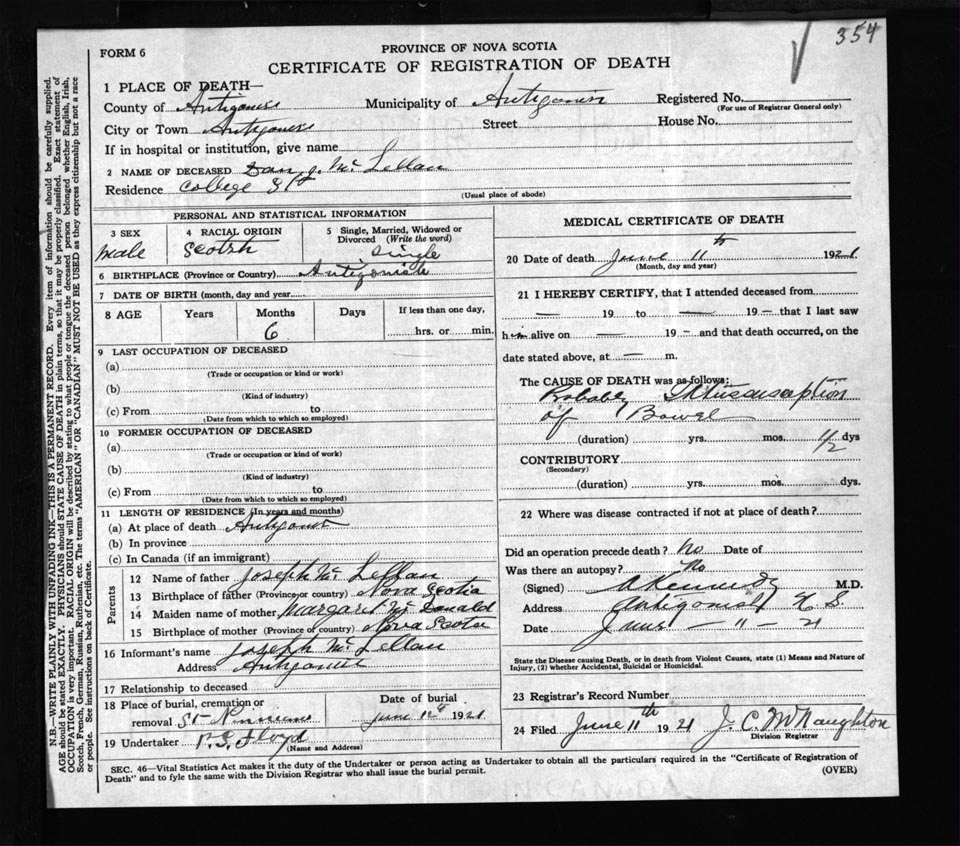 354
FORM 6
PROVINCE OF NOVA SCOTIA
CERTIFICATE OF REGISTRATION OF DEATH
1 PLACE OF DEATH—
County of Antigonish Municipality of Antigonish Registered No.
(For use of Registrar General only)
City or Town Antigonish Street House No.
If in hospital or institution, give name
2 NAME OF DECEASED Dan J. Mc Lellan
Residence College St
(Usual place of abode)
PERSONAL AND STATISTICAL INFORMATION
3 SEX male
4 RACIAL ORIGIN Scotsh
5 Single, Married, Widowed or
Divorced (Write the word)
Single
6 BIRTHPLACE (Province or Country) Antigonish
7 DATE OF BIRTH (month, day and year)
8 AGE Years Months Days If less than one day,
6 hrs. or min.
9 LAST OCCUPATION OF DECEASED
(a)
(Trade or occupation or kind or work)
(b)
(Kind of industry)
(c) From to
(Date from which to which so employed)
10 FORMER OCCUPATION OF DECEASED
(a)
(Trade or occupation or kind of work)
(b)
(Kind of industry)
(c) From to
(Date from which to which so employed)
11 LENGTH OF RESIDENCE (In years and months)
(a) At place of death Antigonish
(b) In province
(c) In Canada (if an immigrant)
Parents
12 Name of father Joseph Mc Lellan
13 Birthplace of father (Province or country) Nova Scotia
14 Maiden name of mother Margaret Mc Donald
15 Birthplace of mother (Province or country) Nova Scotia
16 Informant's name Joseph Mc Lellan
Address Antigonish
17 Relationship to deceased
18 Place of burial, cremation or
removal St Ninians
Date of burial
June 12 1921
19 Undertaker P.S. Floyd
(Name and Address)
MEDICAL CERTIFICATE OF DEATH
20 Date of death June 11th 1921
(Month, day and year)
21 I HEREBY CERTIFY, that I attended deceased from
— 19 to — 19 — that I last saw
him alive on — 19 — and that death occurred, on the
date stated above, at — m.
The CAUSE OF DEATH was as follows:
Probably Intussusception
of Bowel
(duration) yrs. mos. 1/2 dys
CONTRIBUTORY
(Secondary)
(duration) yrs. mos. dys.
22 Where was disease contracted if not at place of death?
Did an operation precede death? No Date of
Was there an autopsy? No
(Signed) A Kennedy M.D.
Address Antigonish N. S.
Date June — 11 — 21
State the Disease causing Death, or in death from Violent Causes, state (1) Means and Nature of
Injury, (2) whether Accidental, Suicidal or Homicidal.
23 Registrar's Record Number
24 Filed June 11th 1921 J. C. McNaughton
Division Registrar
SEC. 46—Vital Statistics Act makes it the duty of the Undertaker or person acting as Undertaker to obtain all the particulars required in the "Certificate of Registration of
Death" and to fyle the same with the Division Registrar who shall issue the burial permit.
(OVER)
N.B.—WRITE PLAINLY WITH UNFADING INK—THIS IS A PERMANENT RECORD. Every item of information should be carefully supplied.
AGE should be stated EXACTLY. PHYSICIANS should STATE CAUSE OF DEATH in plain terms, so that it may be properly classified. Exact statement of
OCCUPATION is very important. RACIAL ORIGIN will be described by stating to what people or tongue the deceased person belonged whether English, Irish,
Scotch, French, German, Russian, Ruthenian, etc. The terms "AMERICAN" OR "CANADIAN" MUST NOT BE USED as they express citizenship but not a race
or people. See instructions on back of Certificate.